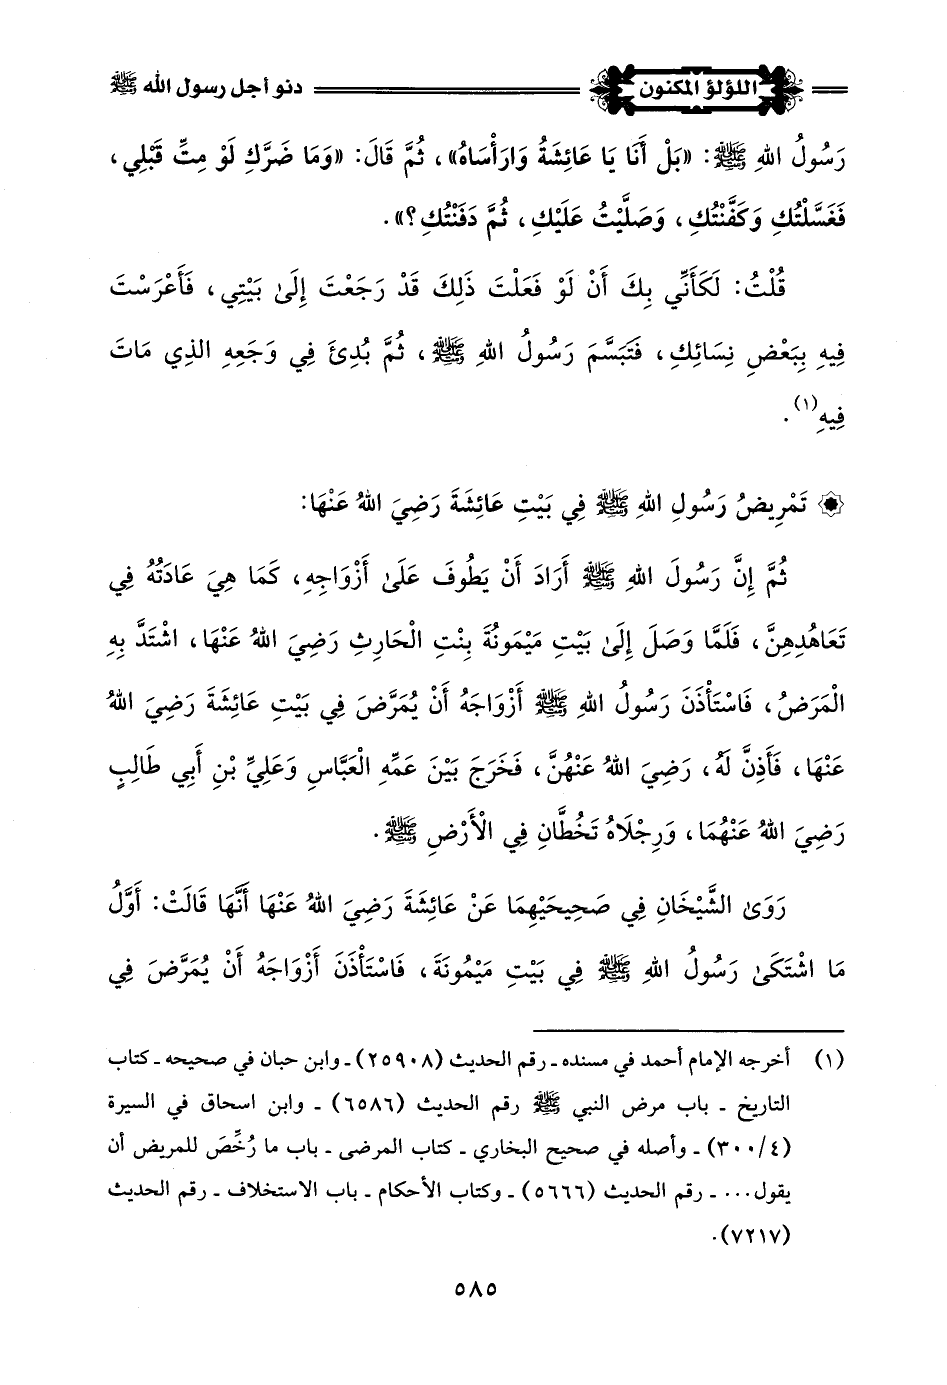 اللؤلؤ المكنون دنو أجل رسول الله ﷺ
رَسُولُ اللهِ ﷺ: «بَلْ أَنَا يَا عَائِشَةُ وَارَأْسَاهُ»، ثُمَّ قَالَ: «وَمَا ضَرَّكِ لَوْ مِتِّ قَبْلِي،
فَغَسَّلْتُكِ وَكَفَّنْتُكِ، وَصَلَّيْتُ عَلَيْكِ، ثُمَّ دَفَنْتُكِ؟».
قُلْتُ: لَكَأَنِّي بِكَ أَنْ لَوْ فَعَلْتَ ذَلِكَ قَدْ رَجَعْتَ إِلَىٰ بَيْتِي، فَأَعْرَسْتَ
فِيهِ بِبَعْضِ نِسَائِكِ، فَتَبَسَّمَ رَسُولُ اللهِ ﷺ، ثُمَّ بُدِئَ فِي وَجَعِهِ الذِي مَاتَ
فِيهِ(١).
تَمْرِيضُ رَسُولِ اللهِ ﷺ فِي بَيْتِ عَائِشَةَ رَضِيَ اللهُ عَنْهَا:
ثُمَّ إِنَّ رَسُولَ اللهِ ﷺ أَرَادَ أَنْ يَطُوفَ عَلَىٰ أَزْوَاجِهِ، كَمَا هِيَ عَادَتُهُ فِي
تَعَاهُدِهِنَّ، فَلَمَّا وَصَلَ إِلَىٰ بَيْتِ مَيْمُونَةَ بِنْتِ الْحَارِثِ رَضِيَ اللهُ عَنْهَا، اشْتَدَّ بِهِ
الْمَرَضُ، فَاسْتَأْذَنَ رَسُولُ اللهِ ﷺ أَزْوَاجَهُ أَنْ يُمَرَّضَ فِي بَيْتِ عَائِشَةَ رَضِيَ اللهُ
عَنْهَا، فَأَذِنَّ لَهُ، رَضِيَ اللهُ عَنْهُنَّ، فَخَرَجَ بَيْنَ عَمِّهِ الْعَبَّاسِ وَعَلِيِّ بْنِ أَبِي طَالِبٍ
رَضِيَ اللهُ عَنْهُمَا، وَرِجْلَاهُ تَخُطَّانِ فِي الْأَرْضِ ﷺ.
رَوَىٰ الشَّيْخَانِ فِي صَحِيحَيْهِمَا عَنْ عَائِشَةَ رَضِيَ اللهُ عَنْهَا أَنَّهَا قَالَتْ: أَوَّلُ
مَا اشْتَكَىٰ رَسُولُ اللهِ ﷺ فِي بَيْتِ مَيْمُونَةَ، فَاسْتَأْذَنَ أَزْوَاجَهُ أَنْ يُمَرَّضَ فِي
(١) أخرجه الإمام أحمد في مسنده ـ رقم الحديث (٢٥٩٠٨) ـ وابن حبان في صحيحه ـ كتاب
التاريخ ـ باب مرض النبي ﷺ رقم الحديث (٦٥٨٦) ـ وابن اسحاق في السيرة
(٣٠٠/٤) ـ وأصله في صحيح البخاري ـ كتاب المرضى ـ باب ما رُخِّصَ للمريض أن
يقول... ـ رقم الحديث (٥٦٦٦) ـ وكتاب الأحكام ـ باب الاستخلاف ـ رقم الحديث
(٧٢١٧).
٥٨٥